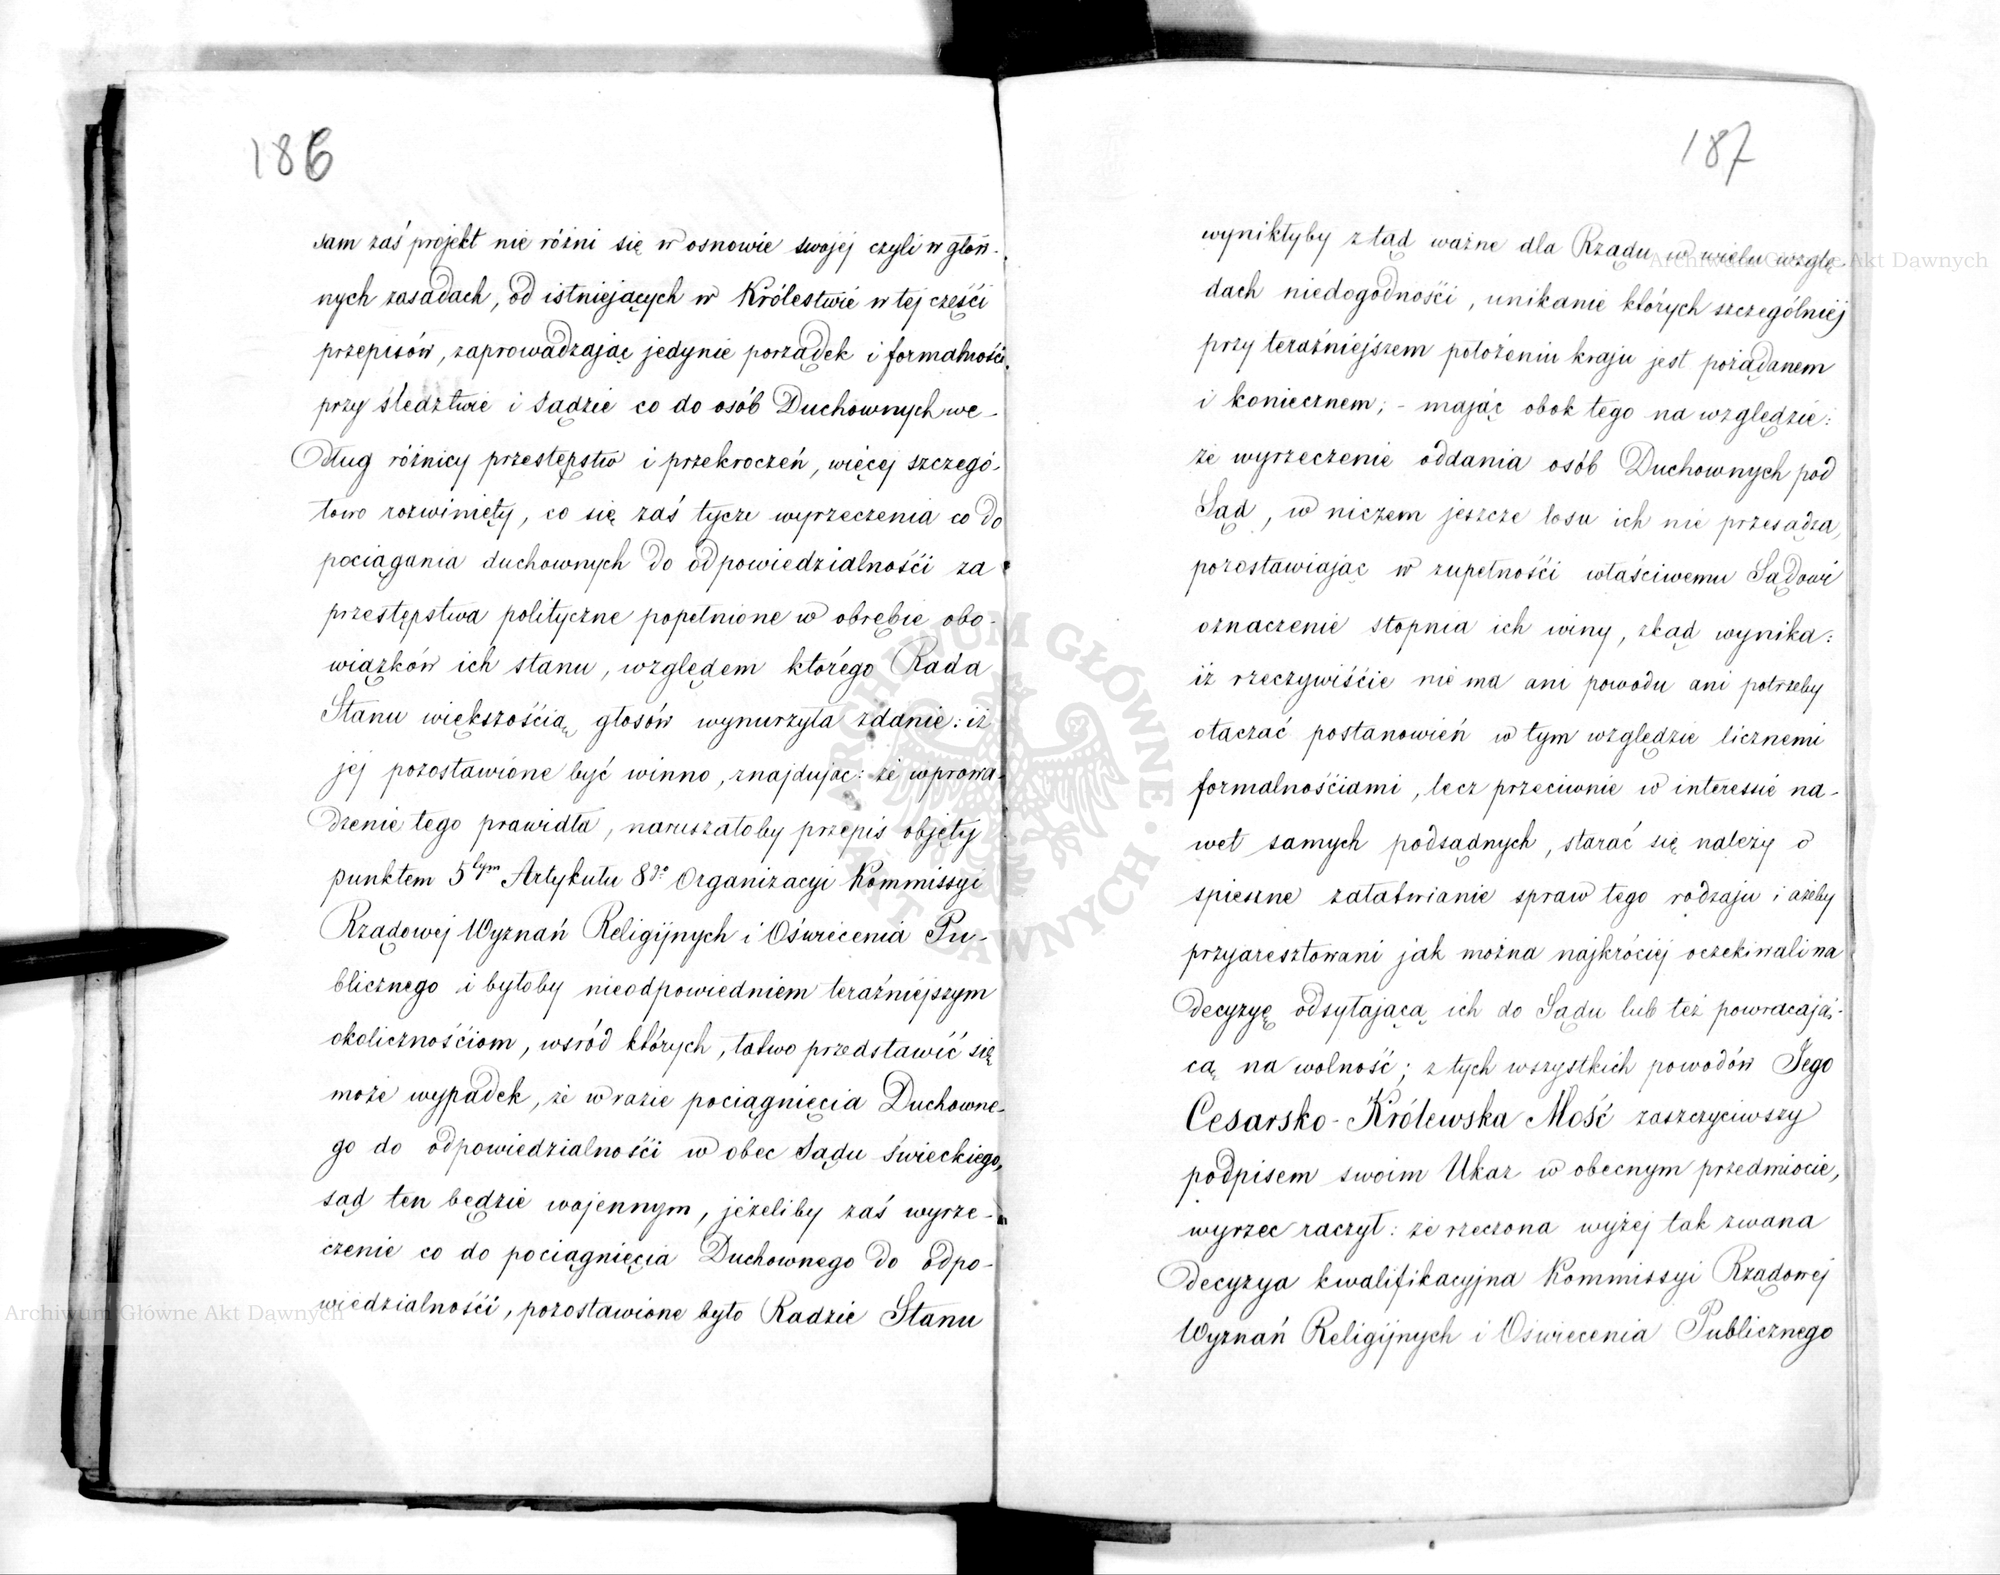 186
sam zaś projekt nie różni się w osnowie swojej czyli w głów-
nych zasadach, od istniejących w Królestwie w tej części
przepisów, zaprowadzając jedynie porządek i formalności
przy śledztwie i sądzie co do osób Duchownych we-
dług różnicy przestępstw i przekroczeń, więcej szczegó-
łowo rozwinięty, co się zaś tycze wyrzeczenia co do
pociągania duchownych do odpowiedzialności za
przestępstwa polityczne popełnione w obrębie obo-
wiązków ich stanu, względem którego Rada
Stanu większością głosów wynurzyła zdanie: iż
jej pozostawione być winno, znajdując: że wprowa-
dzenie tego prawidła, naruszałoby przepis objęty
punktem 5tym Artykułu 8go Organizacyi Kommissyi
Rządowej Wyznań Religijnych i Oświecenia Pu-
blicznego i byłoby nieodpowiedniem teraźniejszym
okolicznościom, wsród których, łatwo przedstawić się
może wypadek, że w razie pociągnięcia Duchowne-
go do odpowiedzialności w obec Sądu świeckiego,
sąd ten będzie wojennym, jeżeliby zaś wyrze-
czenie co do pociągnięcia Duchownego do odpo-
wiedzialności, pozostawione było Radzie Stanu
187
wynikłyby ztąd ważne dla Rządu w wielu wzglę-
dach niedogodności, unikanie których szczególniej
przy teraźniejszem położeniu kraju jest pożądanem
i koniecznem; - mając obok tego na względzie:
że wyrzeczenie oddania osób Duchownych pod
Sąd, w niczem jeszcze losu ich nie przesądza,
pozostawiając w zupełności właściwemu Sądowi
oznaczenie stopnia ich winy, zkąd wynika:
iż rzeczywiście nie ma ani powodu ani potrzeby
otaczać postanowień w tym względzie licznemi
formalnościami, lecz przeciwnie w interessie na-
wet samych podsądnych, starać się należy o
spieszne załatwianie spraw tego rodzaju i ażeby
przyaresztowani jak można najkróciej oczekiwali na
decyzyę odsyłającą ich do Sądu lub też powracają-
cą na wolność; z tych wszystkich powodów Jego
Cesarsko-Królewska Mość zaszczyciwszy
podpisem swoim Ukaz w obecnym przedmiocie,
wyrzec raczył: że rzeczona wyżej tak zwana
decyzya kwalifikacyjna Kommissyi Rządowej
Wyznań Religijnych i Oświecenia Publicznego
ARCHIWUM GŁÓWNE AKT DAWNYCH
Archiwum Główne Akt Dawnych
Archiwum Główne Akt Dawnych